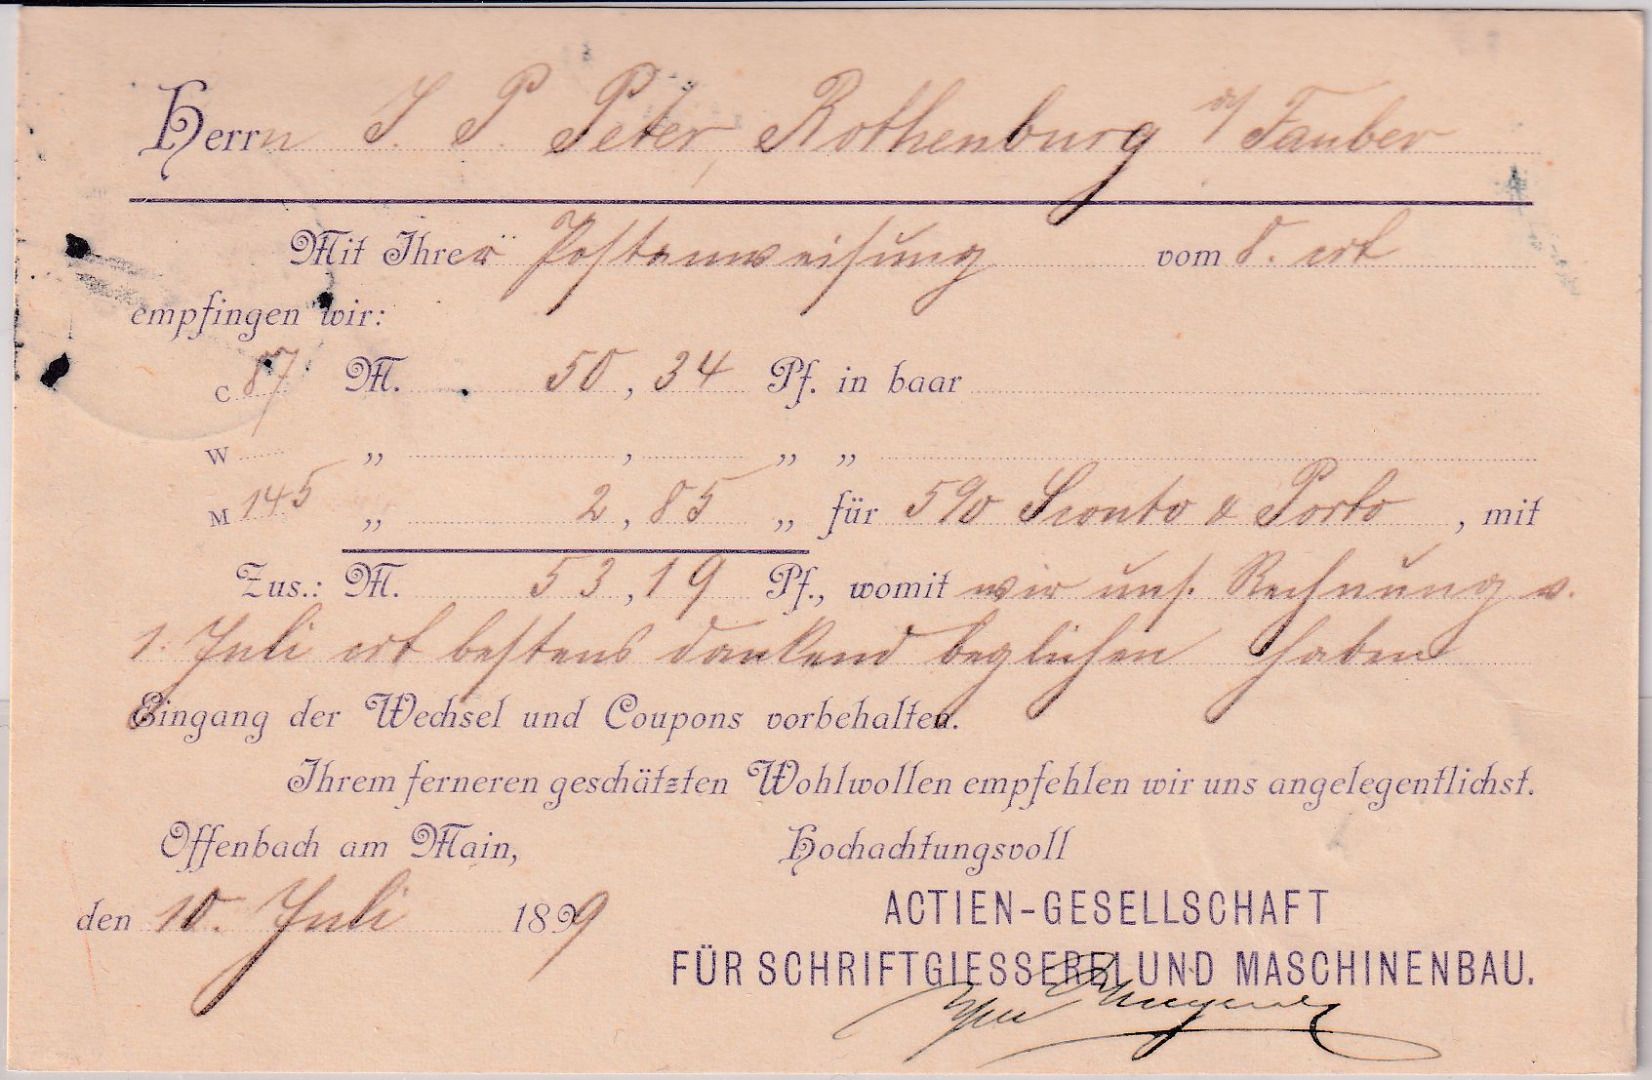 Herrn J. P. Peter, Rothenburg o/ Tauber
Mit Ihrer Postanweisung vom 8. crt
empfingen wir:
C 87 M. 50, 34 Pf. in baar
W „ , „ „
M 145 „ 2, 85 „ für 5% Sconto & Porto, mit
Zus.: M. 53, 19 Pf., womit wir uns. Rechnung v.
1. Juli crt bestens dankend beglichen haben
Eingang der Wechsel und Coupons vorbehalten.
Ihrem ferneren geschätzten Wohlwollen empfehlen wir uns angelegentlichst.
Offenbach am Main, Hochachtungsvoll
den 10. Juli 1899
ACTIEN-GESELLSCHAFT
FÜR SCHRIFTGIESSEREI UND MASCHINENBAU.